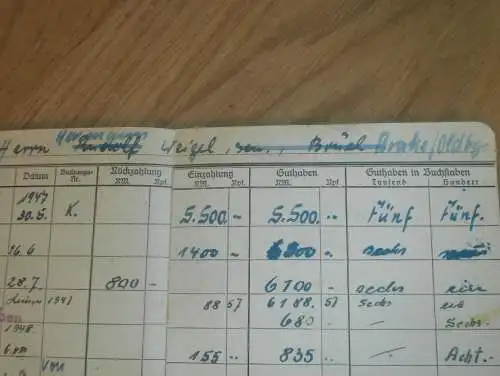 Herrn Hermann Rudolf Weigel, sen., Brüel Brake/Oldbg.
Datum Buchungs-Nr. Rückzahlung RM. Rpf. Einzahlung RM. Rpf. Guthaben RM. Rpf. Guthaben in Buchstaben Tausend Hundert
1947
30.5. K. 5.500 – 5.500 -- fünf fünf
26.6 1400 – sechs
28.7. 800 – 6100 – sechs ein
1947 88 57 6188. 57 sechs ein
1948. 680. – Sechs.
155 -- 835 -- – Acht.